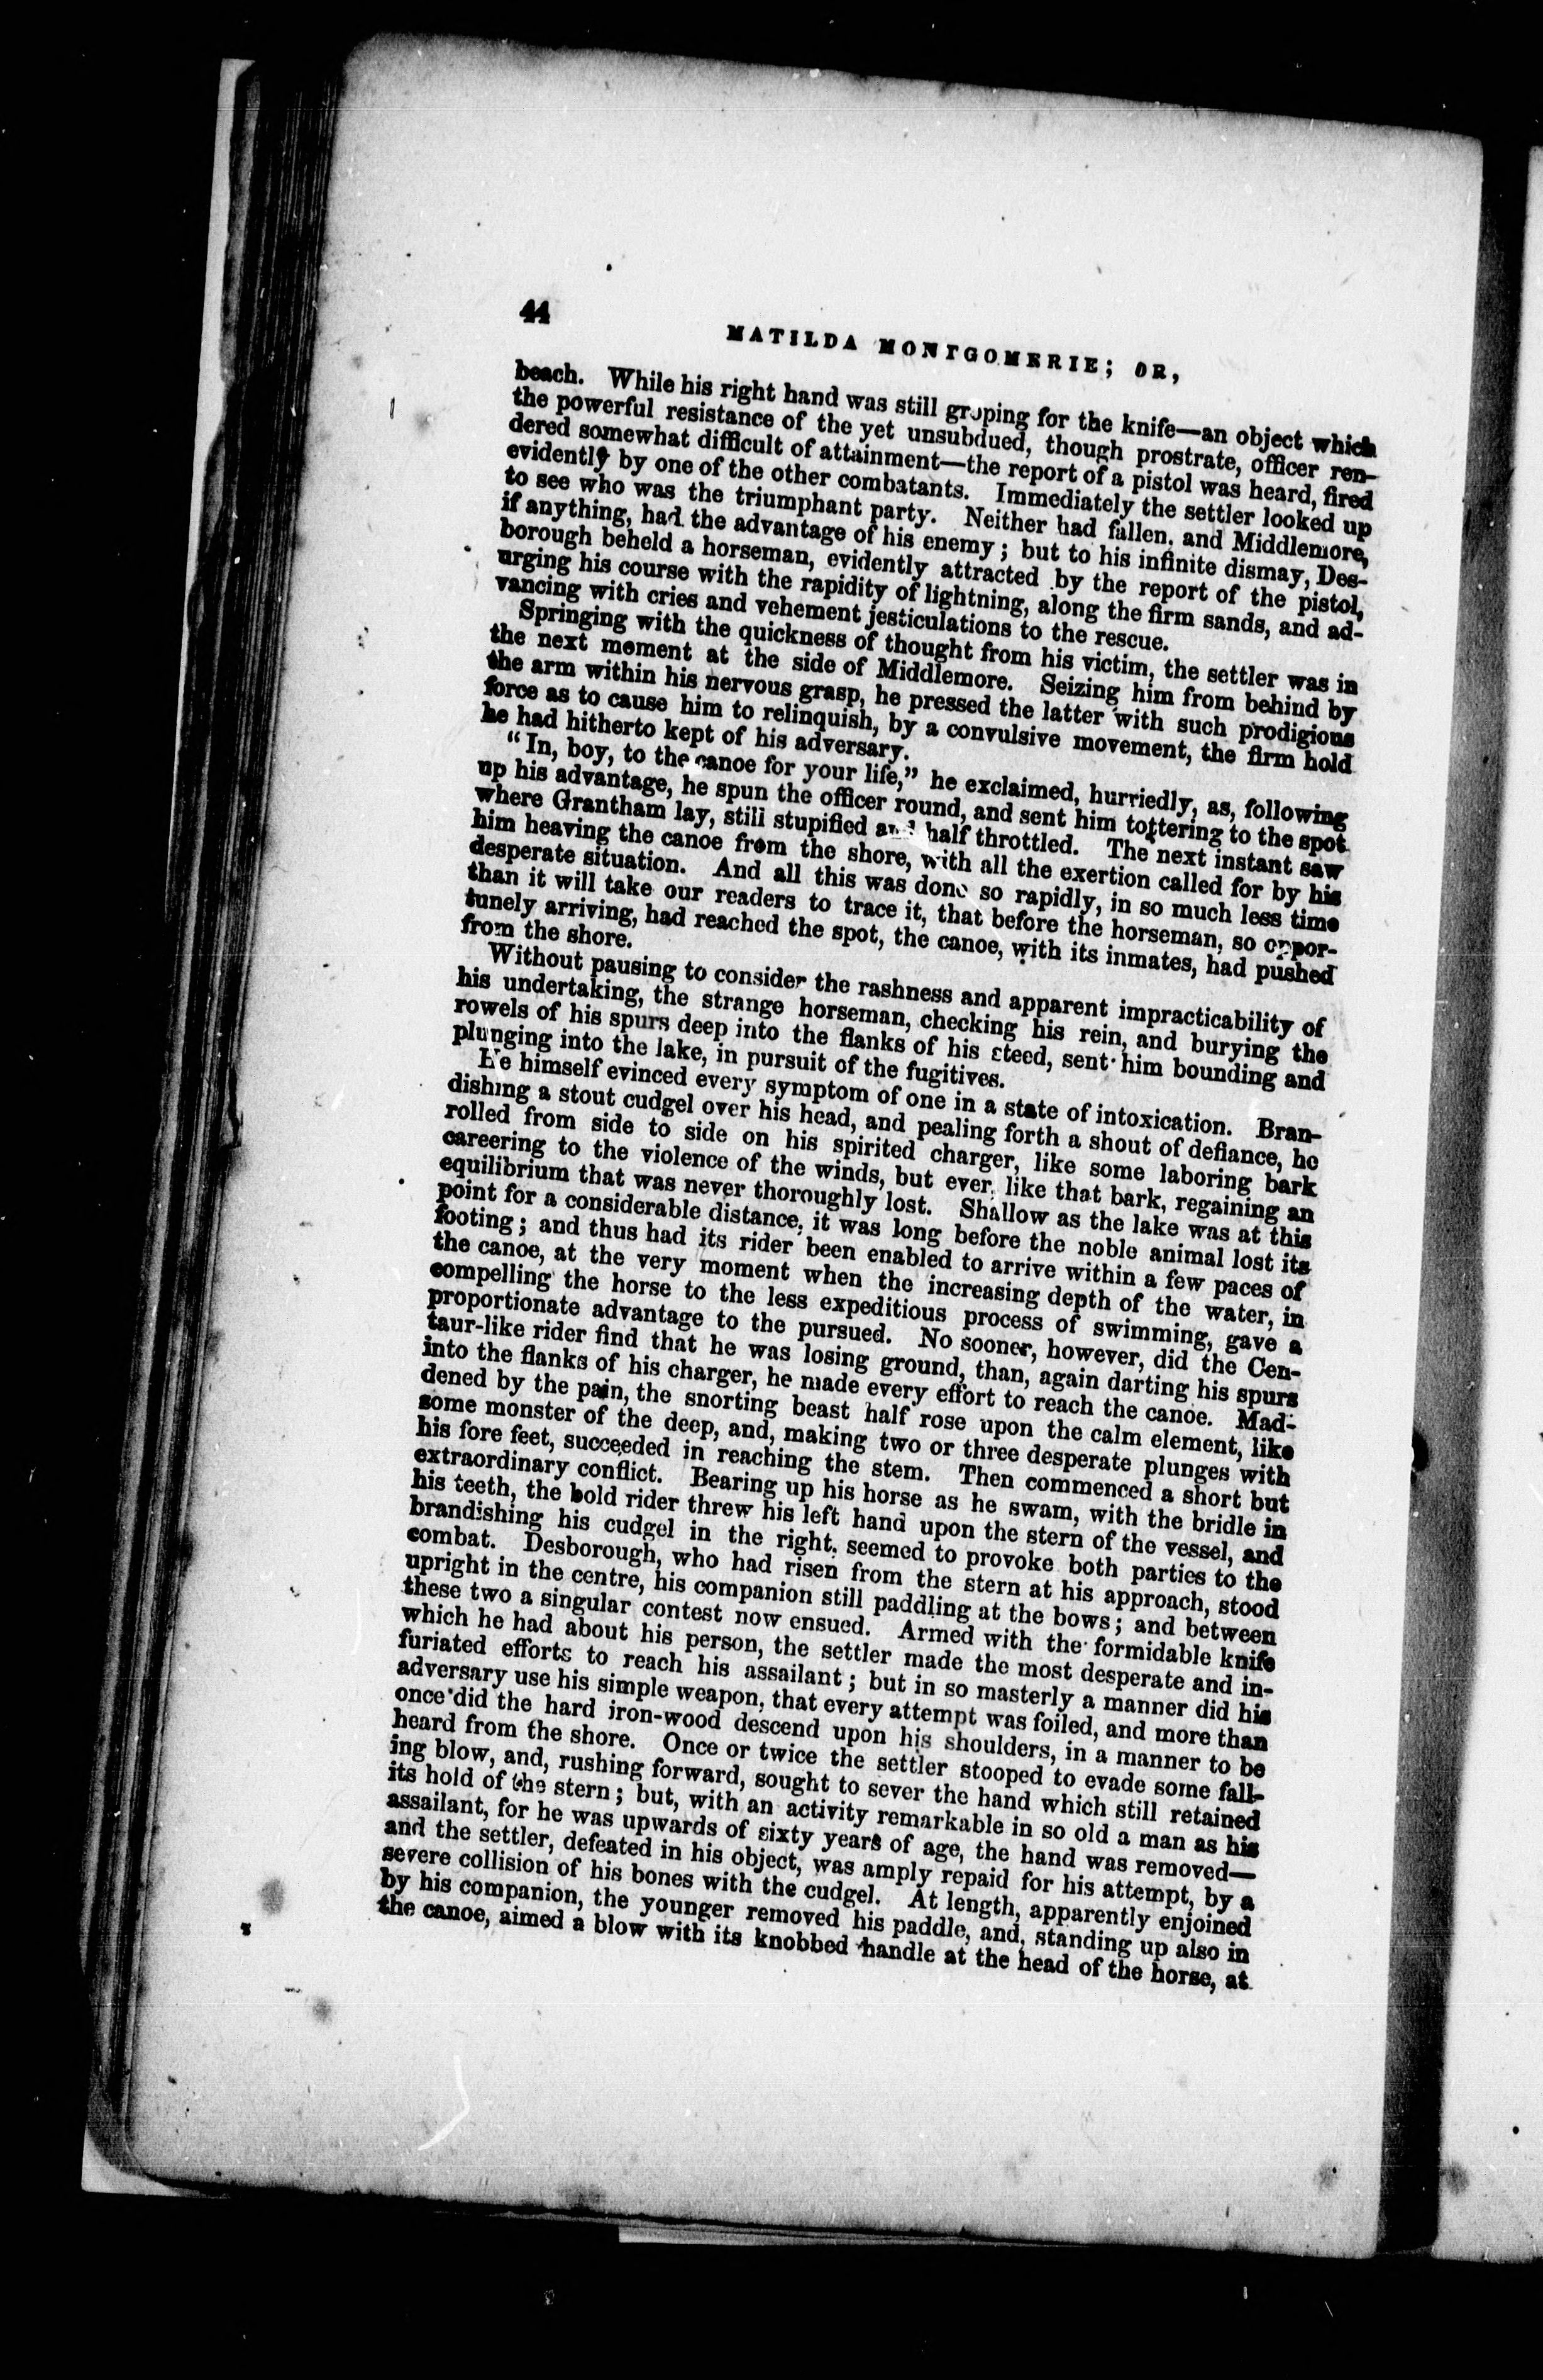 44
MATILDA MONTGOMERIE; OR,
beach. While his right hand was still groping for the knife—an object which
the powerful resistance of the yet unsubdued, though prostrate, officer ren-
dered somewhat difficult of attainment—the report of a pistol was heard, fired
evidently by one of the other combatants. Immediately the settler looked up
to see who was the triumphant party. Neither had fallen, and Middlemore,
if anything, had the advantage of his enemy; but to his infinite dismay, Des-
borough beheld a horseman, evidently attracted by the report of the pistol,
urging his course with the rapidity of lightning, along the firm sands, and ad-
vancing with cries and vehement jesticulations to the rescue.
Springing with the quickness of thought from his victim, the settler was in
the next moment at the side of Middlemore. Seizing him from behind by
the arm within his nervous grasp, he pressed the latter with such prodigious
force as to cause him to relinquish, by a convulsive movement, the firm hold
he had hitherto kept of his adversary.
"In, boy, to the canoe for your life," he exclaimed, hurriedly, as, following
up his advantage, he spun the officer round, and sent him tottering to the spot
where Grantham lay, still stupified and half throttled. The next instant saw
him heaving the canoe from the shore, with all the exertion called for by his
desperate situation. And all this was done so rapidly, in so much less time
than it will take our readers to trace it, that before the horseman, so oppor-
tunely arriving, had reached the spot, the canoe, with its inmates, had pushed
from the shore.
Without pausing to consider the rashness and apparent impracticability of
his undertaking, the strange horseman, checking his rein, and burying the
rowels of his spurs deep into the flanks of his steed, sent him bounding and
plunging into the lake, in pursuit of the fugitives.
He himself evinced every symptom of one in a state of intoxication. Bran-
dishing a stout cudgel over his head, and pealing forth a shout of defiance, he
rolled from side to side on his spirited charger, like some laboring bark
careering to the violence of the winds, but ever, like that bark, regaining an
equilibrium that was never thoroughly lost. Shallow as the lake was at this
point for a considerable distance, it was long before the noble animal lost its
footing; and thus had its rider been enabled to arrive within a few paces of
the canoe, at the very moment when the increasing depth of the water, in
compelling the horse to the less expeditious process of swimming, gave a
proportionate advantage to the pursued. No sooner, however, did the Cen-
taur-like rider find that he was losing ground, than, again darting his spurs
into the flanks of his charger, he made every effort to reach the canoe. Mad-
dened by the pain, the snorting beast half rose upon the calm element, like
some monster of the deep, and, making two or three desperate plunges with
his fore feet, succeeded in reaching the stem. Then commenced a short but
extraordinary conflict. Bearing up his horse as he swam, with the bridle in
his teeth, the bold rider threw his left hand upon the stern of the vessel, and
brandishing his cudgel in the right, seemed to provoke both parties to the
combat. Desborough, who had risen from the stern at his approach, stood
upright in the centre, his companion still paddling at the bows; and between
these two a singular contest now ensued. Armed with the formidable knife
which he had about his person, the settler made the most desperate and in-
furiated efforts to reach his assailant; but in so masterly a manner did his
adversary use his simple weapon, that every attempt was foiled, and more than
once did the hard iron-wood descend upon his shoulders, in a manner to be
heard from the shore. Once or twice the settler stooped to evade some fall-
ing blow, and, rushing forward, sought to sever the hand which still retained
its hold of the stern; but, with an activity remarkable in so old a man as his
assailant, for he was upwards of sixty years of age, the hand was removed—
and the settler, defeated in his object, was amply repaid for his attempt, by a
severe collision of his bones with the cudgel. At length, apparently enjoined
by his companion, the younger removed his paddle, and, standing up also in
the canoe, aimed a blow with its knobbed handle at the head of the horse, at